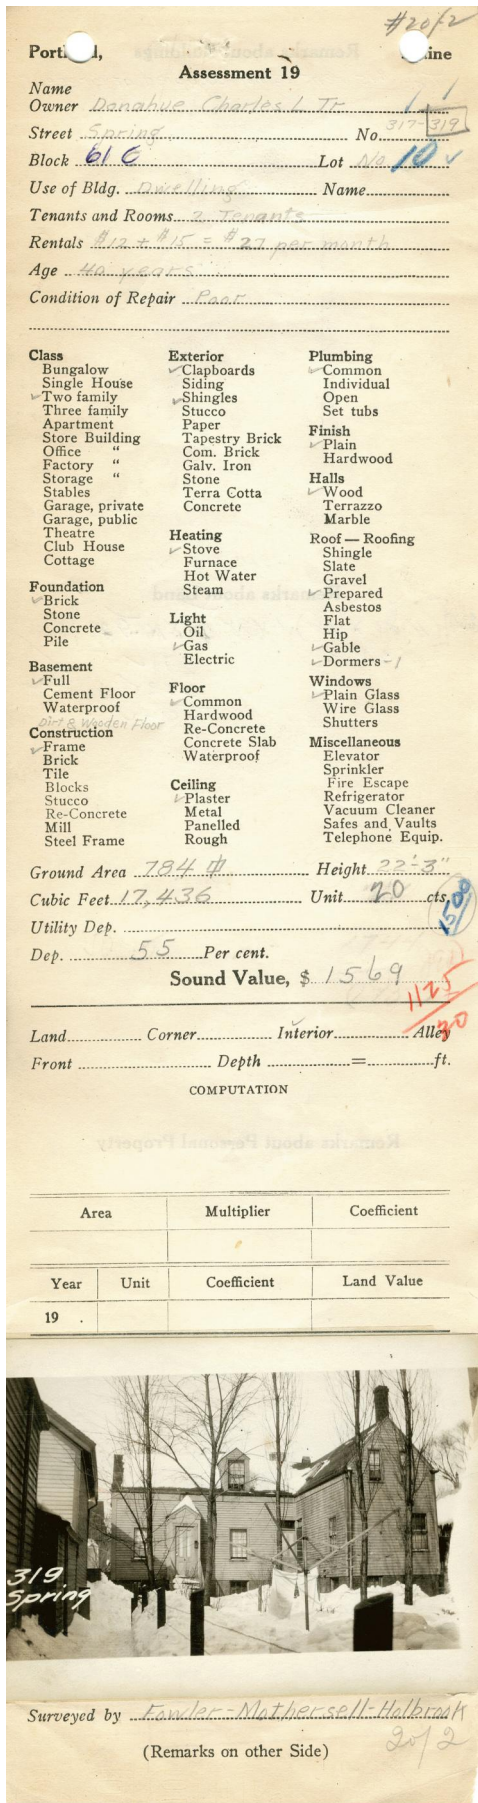 #2 of 2
Portland, Maine
Assessment 19
Name
Owner Donahue Charles L Tr
Street Spring No. 317-319
Block 61 C Lot No. 10
Use of Bldg. Dwelling Name
Tenants and Rooms 2 Tenants
Rentals $12 + $15 = $27 per month
Age 40 years
Condition of Repair Poor
Class
Bungalow
Single House
Two family
Three family
Apartment
Store Building
Office "
Factory "
Storage "
Stables
Garage, private
Garage, public
Theatre
Club House
Cottage
Foundation
Brick
Stone
Concrete
Pile
Basement
Full
Cement Floor
Waterproof
Dirt & Wooden Floor
Construction
Frame
Brick
Tile
Blocks
Stucco
Re-Concrete
Mill
Steel Frame
Exterior
Clapboards
Siding
Shingles
Stucco
Paper
Tapestry Brick
Com. Brick
Galv. Iron
Stone
Terra Cotta
Concrete
Heating
Stove
Furnace
Hot Water
Steam
Light
Oil
Gas
Electric
Floor
Common
Hardwood
Re-Concrete
Concrete Slab
Waterproof
Ceiling
Plaster
Metal
Panelled
Rough
Plumbing
Common
Individual
Open
Set tubs
Finish
Plain
Hardwood
Halls
Wood
Terrazzo
Marble
Roof — Roofing
Shingle
Slate
Gravel
Prepared
Asbestos
Flat
Hip
Gable
Dormers - 1
Windows
Plain Glass
Wire Glass
Shutters
Miscellaneous
Elevator
Sprinkler
Fire Escape
Refrigerator
Vacuum Cleaner
Safes and Vaults
Telephone Equip.
Ground Area 784 Height 22'-3"
Cubic Feet 17,436 Unit 20 cts.
1500
Utility Dep.
Dep. 55 Per cent.
Sound Value, $ 1569
1125
30
Land Corner Interior Alley
Front Depth = ft.
COMPUTATION
Area Multiplier Coefficient
Year Unit Coefficient Land Value
19 .
319
Spring
Surveyed by Fowler-Mothersell-Holbrook
2 of 2
(Remarks on other Side)